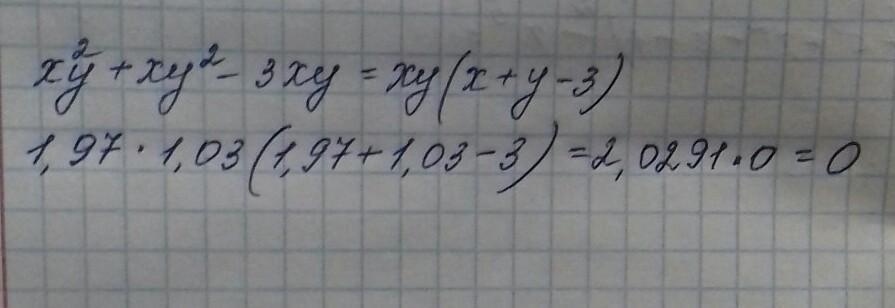 x²y + xy² - 3xy = xy(x + y - 3)
1,97 · 1,03(1,97 + 1,03 - 3) = 2,0291 · 0 = 0